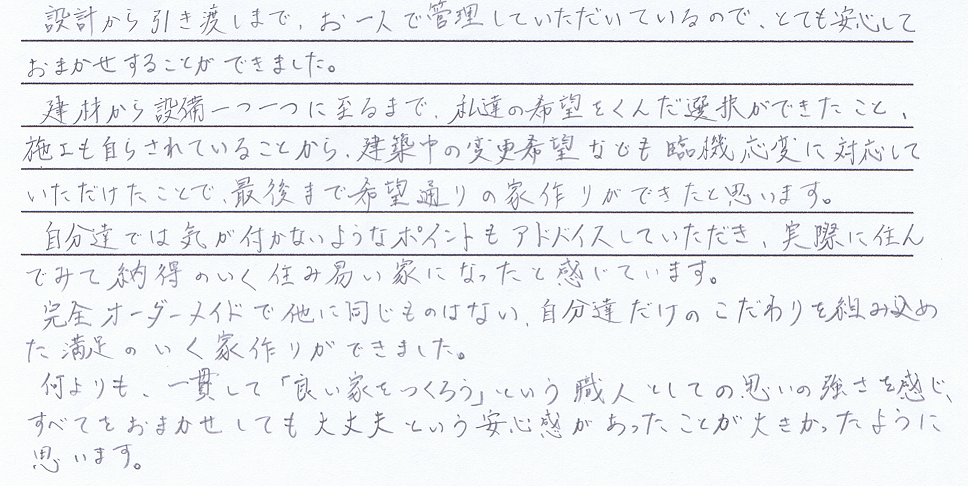 設計から引き渡しまで、お一人で管理していただいているので、とても安心して
おまかせすることができました。
建材から設備一つ一つに至るまで、私達の希望をくんだ選択ができたこと、
施工も自らされていることから、建築中の変更希望なども臨機応変に対応して
いただけたことで、最後まで希望通りの家作りができたと思います。
自分達では気が付かないようなポイントもアドバイスしていただき、実際に住ん
でみて納得のいく住み易い家になったと感じています。
完全オーダーメイドで他に同じものはない、自分達だけのこだわりを組み込め
た満足のいく家作りができました。
何よりも、一貫して「良い家をつくろう」という職人としての思いの強さを感じ、
すべてをおまかせしても大丈夫という安心感があったことが大きかったように
思います。